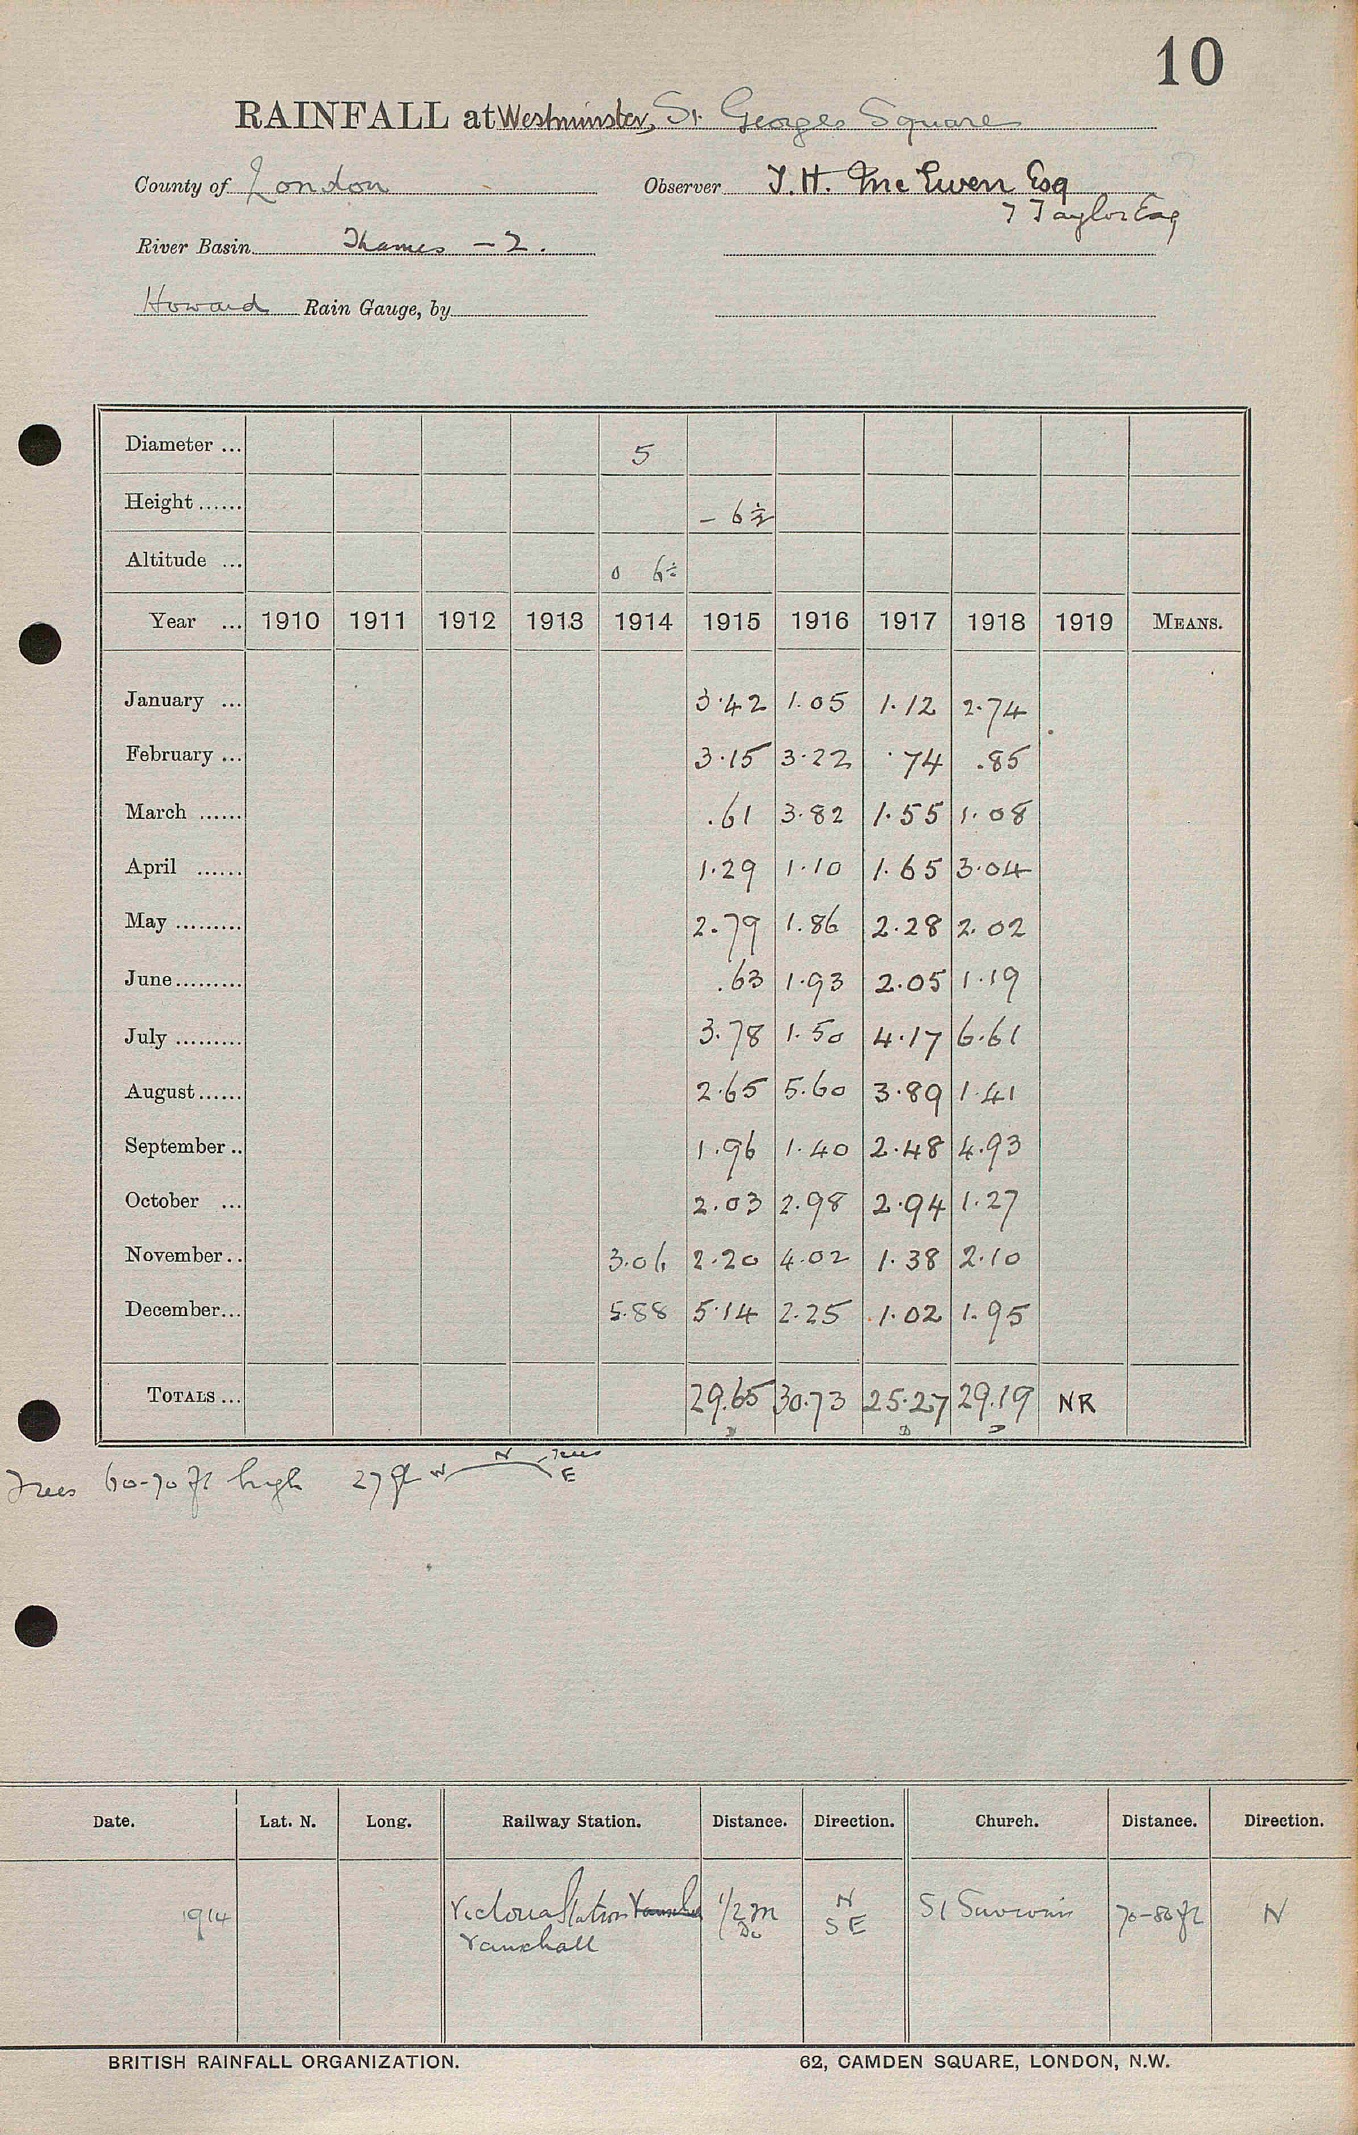 10
RAINFALL at Westminster, St. Georges Square
County of London Observer T. H. McEwen Esq
T Taylor Esq
River Basin Thames — 2.
Howard Rain Gauge, by
Diameter ... 5
Height ...... — 6½
Altitude ... 0 6
Year ... 1910 1911 1912 1913 1914 1915 1916 1917 1918 1919 MEANS.
January ... 3.42 1.05 1.12 2.74
February ... 3.15 3.22 .74 .85
March ...... .61 3.82 1.55 1.08
April ...... 1.29 1.10 1.65 3.04
May ......... 2.79 1.86 2.28 2.02
June ......... .63 1.93 2.05 1.19
July ......... 3.78 1.50 4.17 6.61
August ...... 2.65 5.60 3.89 1.41
September .. 1.96 1.40 2.48 4.93
October ... 2.03 2.98 2.94 1.27
November .. 3.06 2.20 4.02 1.38 2.10
December ... 5.88 5.14 2.25 1.02 1.95
TOTALS ... 29.65 30.73 25.27 29.19 NR
D D D
Trees 60-70 ft high 27 ft W N Trees E
Date. Lat. N. Long. Railway Station. Distance. Direction. Church. Distance. Direction.
1914 Victoria Station Vauxhall 1/2 m N St Saviours 70-80 ft N
Vauxhall Do SE
BRITISH RAINFALL ORGANIZATION. 62, CAMDEN SQUARE, LONDON, N.W.